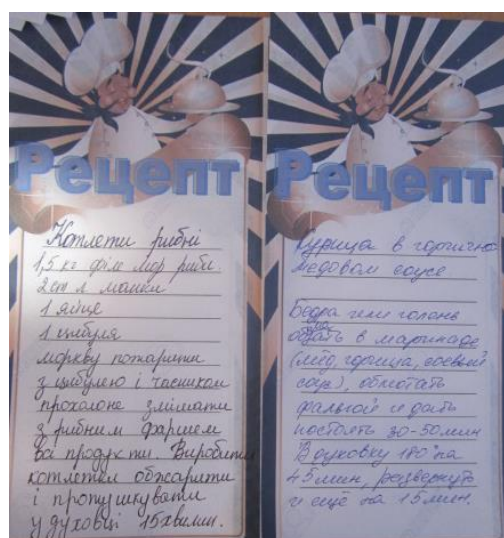 Рецепт
Котлети рибні
1,5 кг філе мор риби.
2 ст л манки
1 яйце
1 цибуля
моркву пожарити
з цибулею і часником
прохолоне змішати
з рибним фаршем
всі продукти. Виробити
котлети обжарити
і протушкувати
у духовці 15 хвилин.
Рецепт
Курица в горчично
медовом соусе
Бедра или голень
в маринаде
(мёд, горчица, соевый
соус), обмотать
фольгой и дать
постоять 30-50 мин
В духовку 180° на
45 мин, развернуть
и ещё на 15 мин.